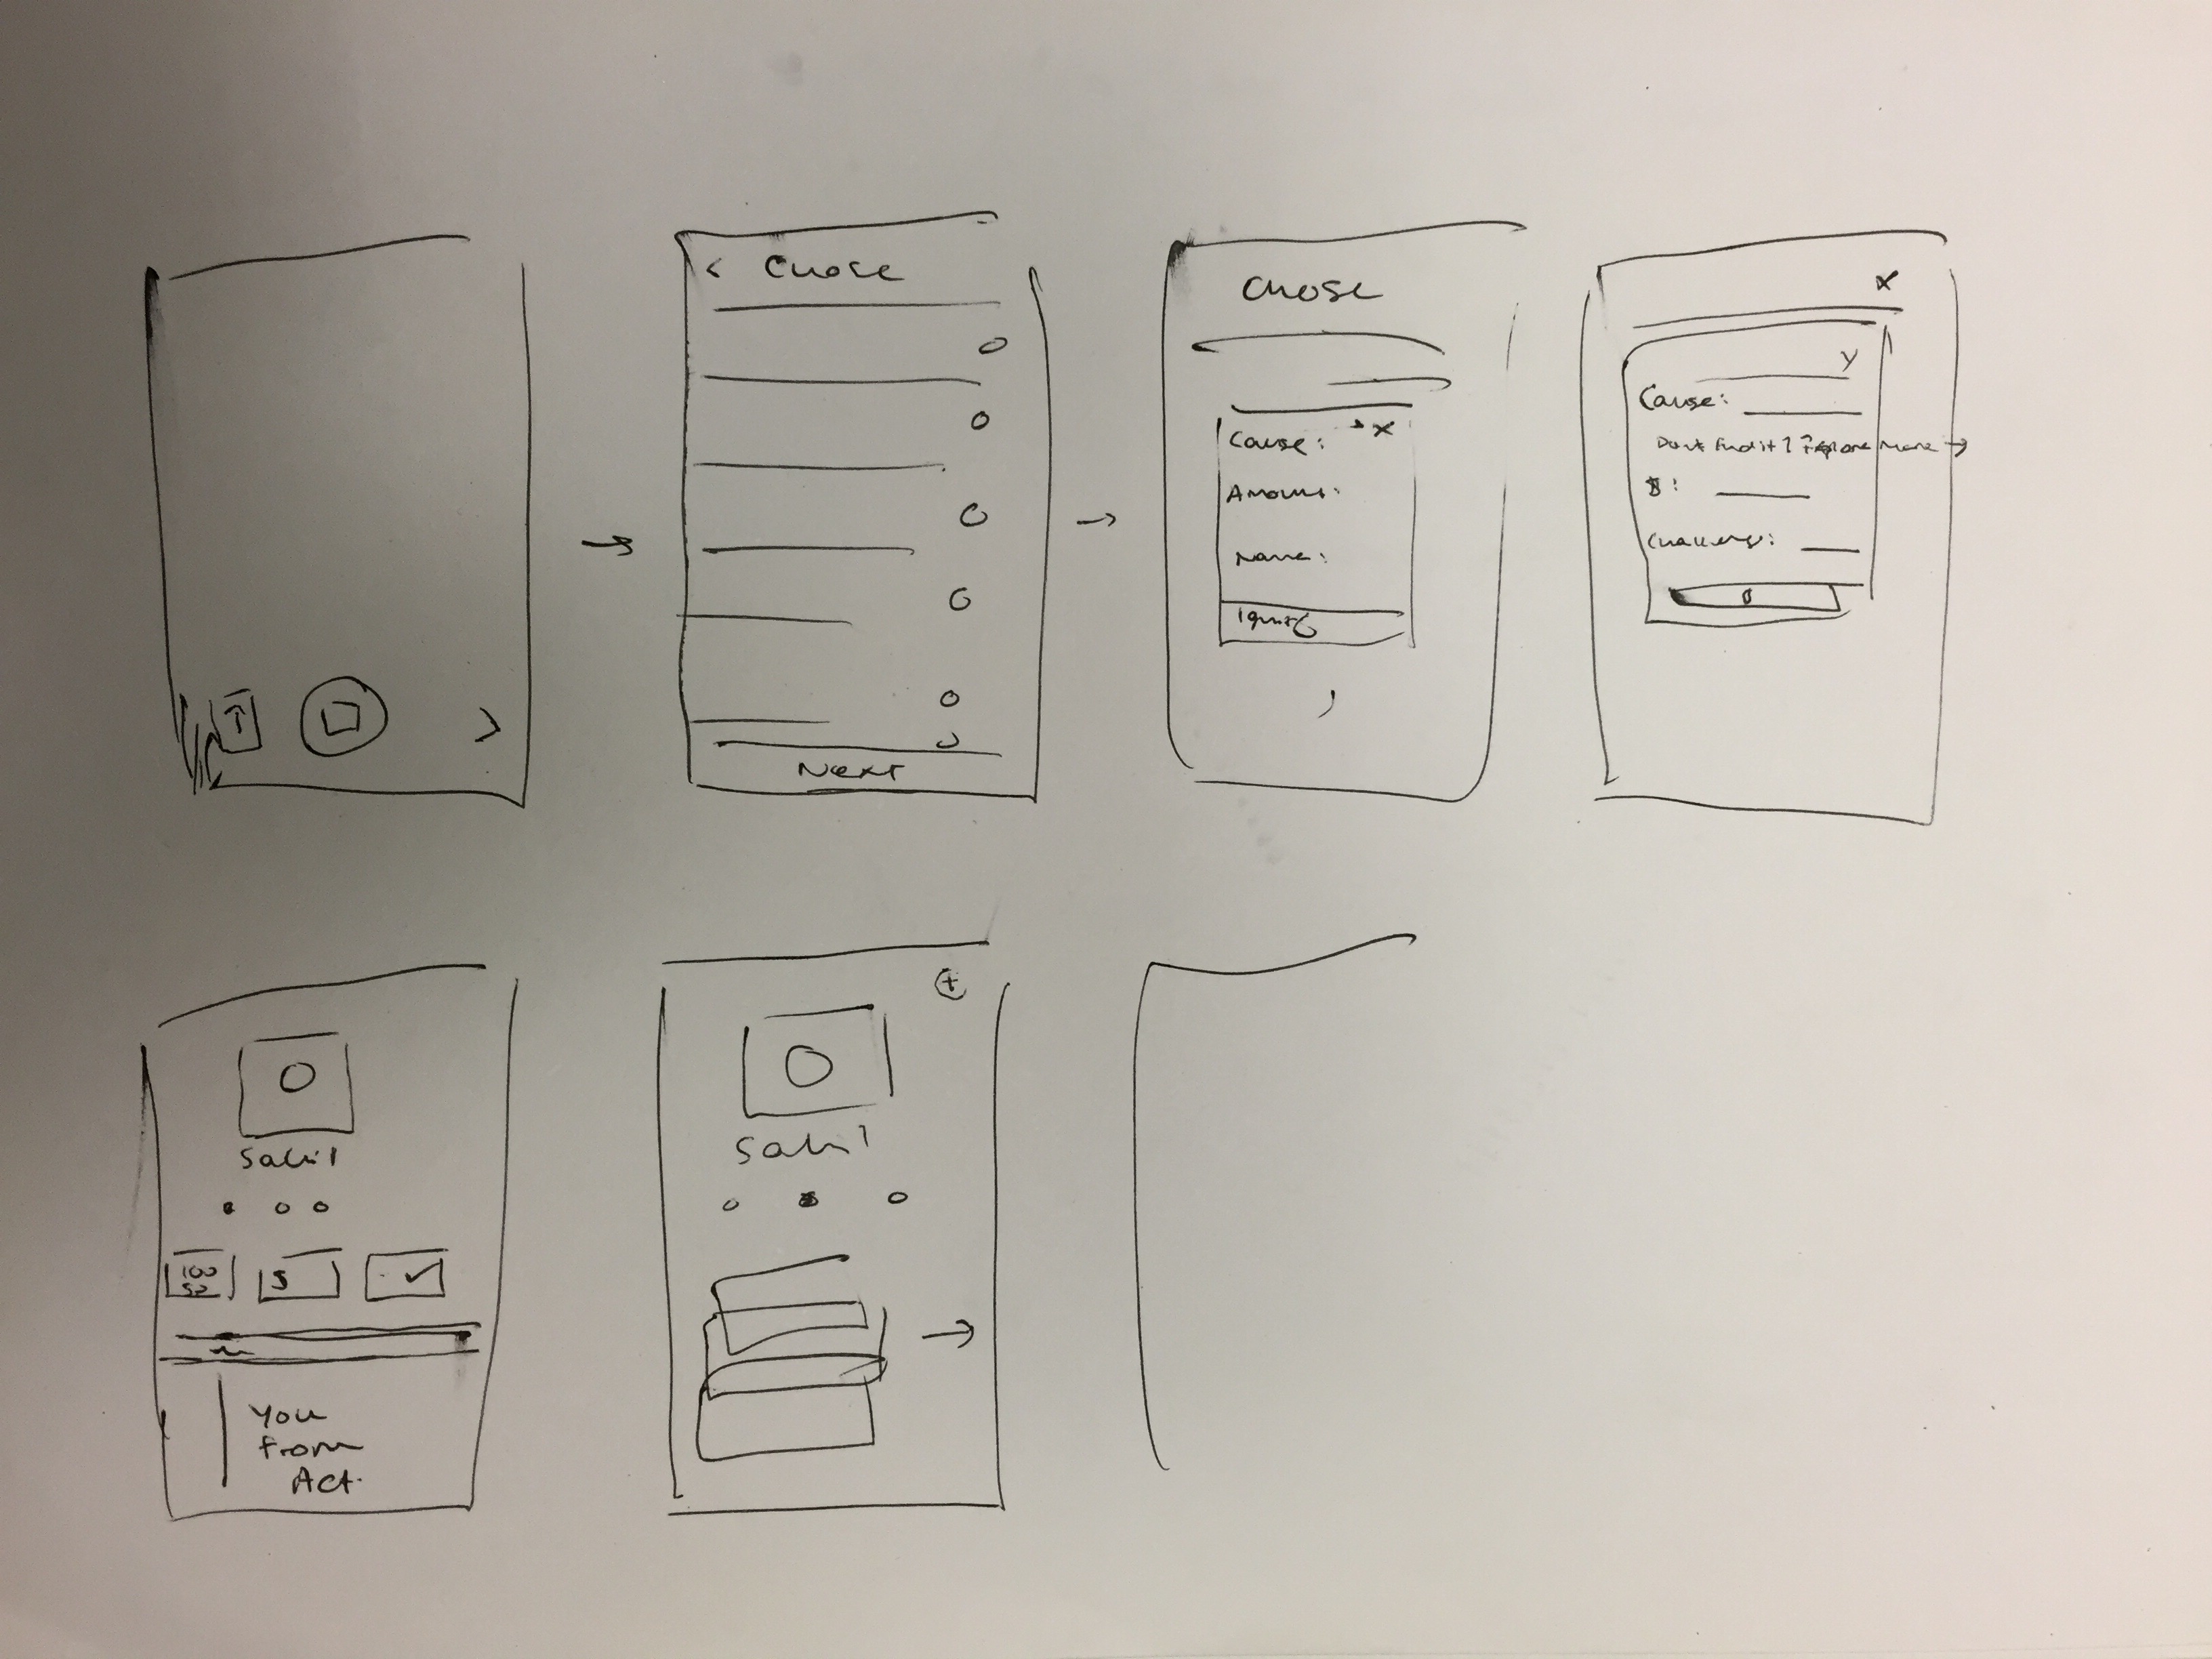 < Chose
Next
Chose
Cause: x
Amount:
Name:
Ignite
x
Cause:
Dont find it? Explore more →
$:
Challenge:
Sahil
100
50
$
You
From
Act.
+
Sahil